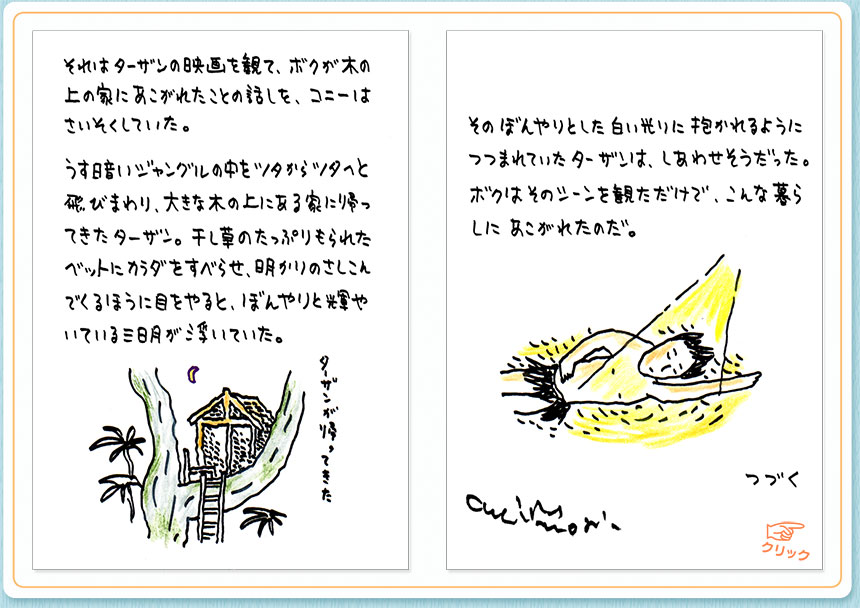 それはターザンの映画を観て、ボクが木の
上の家にあこがれたことの話しを、コニーは
さいそくしていた。
うす暗いジャングルの中をツタからツタへと
飛びまわり、大きな木の上にある家に帰っ
てきたターザン。干し草のたっぷりもられた
ベットにカラダをすべらせ、明かりのさしこん
でくるほうに目をやると、ぼんやりと輝や
いている三日月が浮いていた。
ターザンが帰ってきた
そのぼんやりとした白い光りに抱かれるように
つつまれていたターザンは、しあわせそうだった。
ボクはそのシーンを観ただけで、こんな暮ら
しにあこがれたのだ。
つづく
クリック